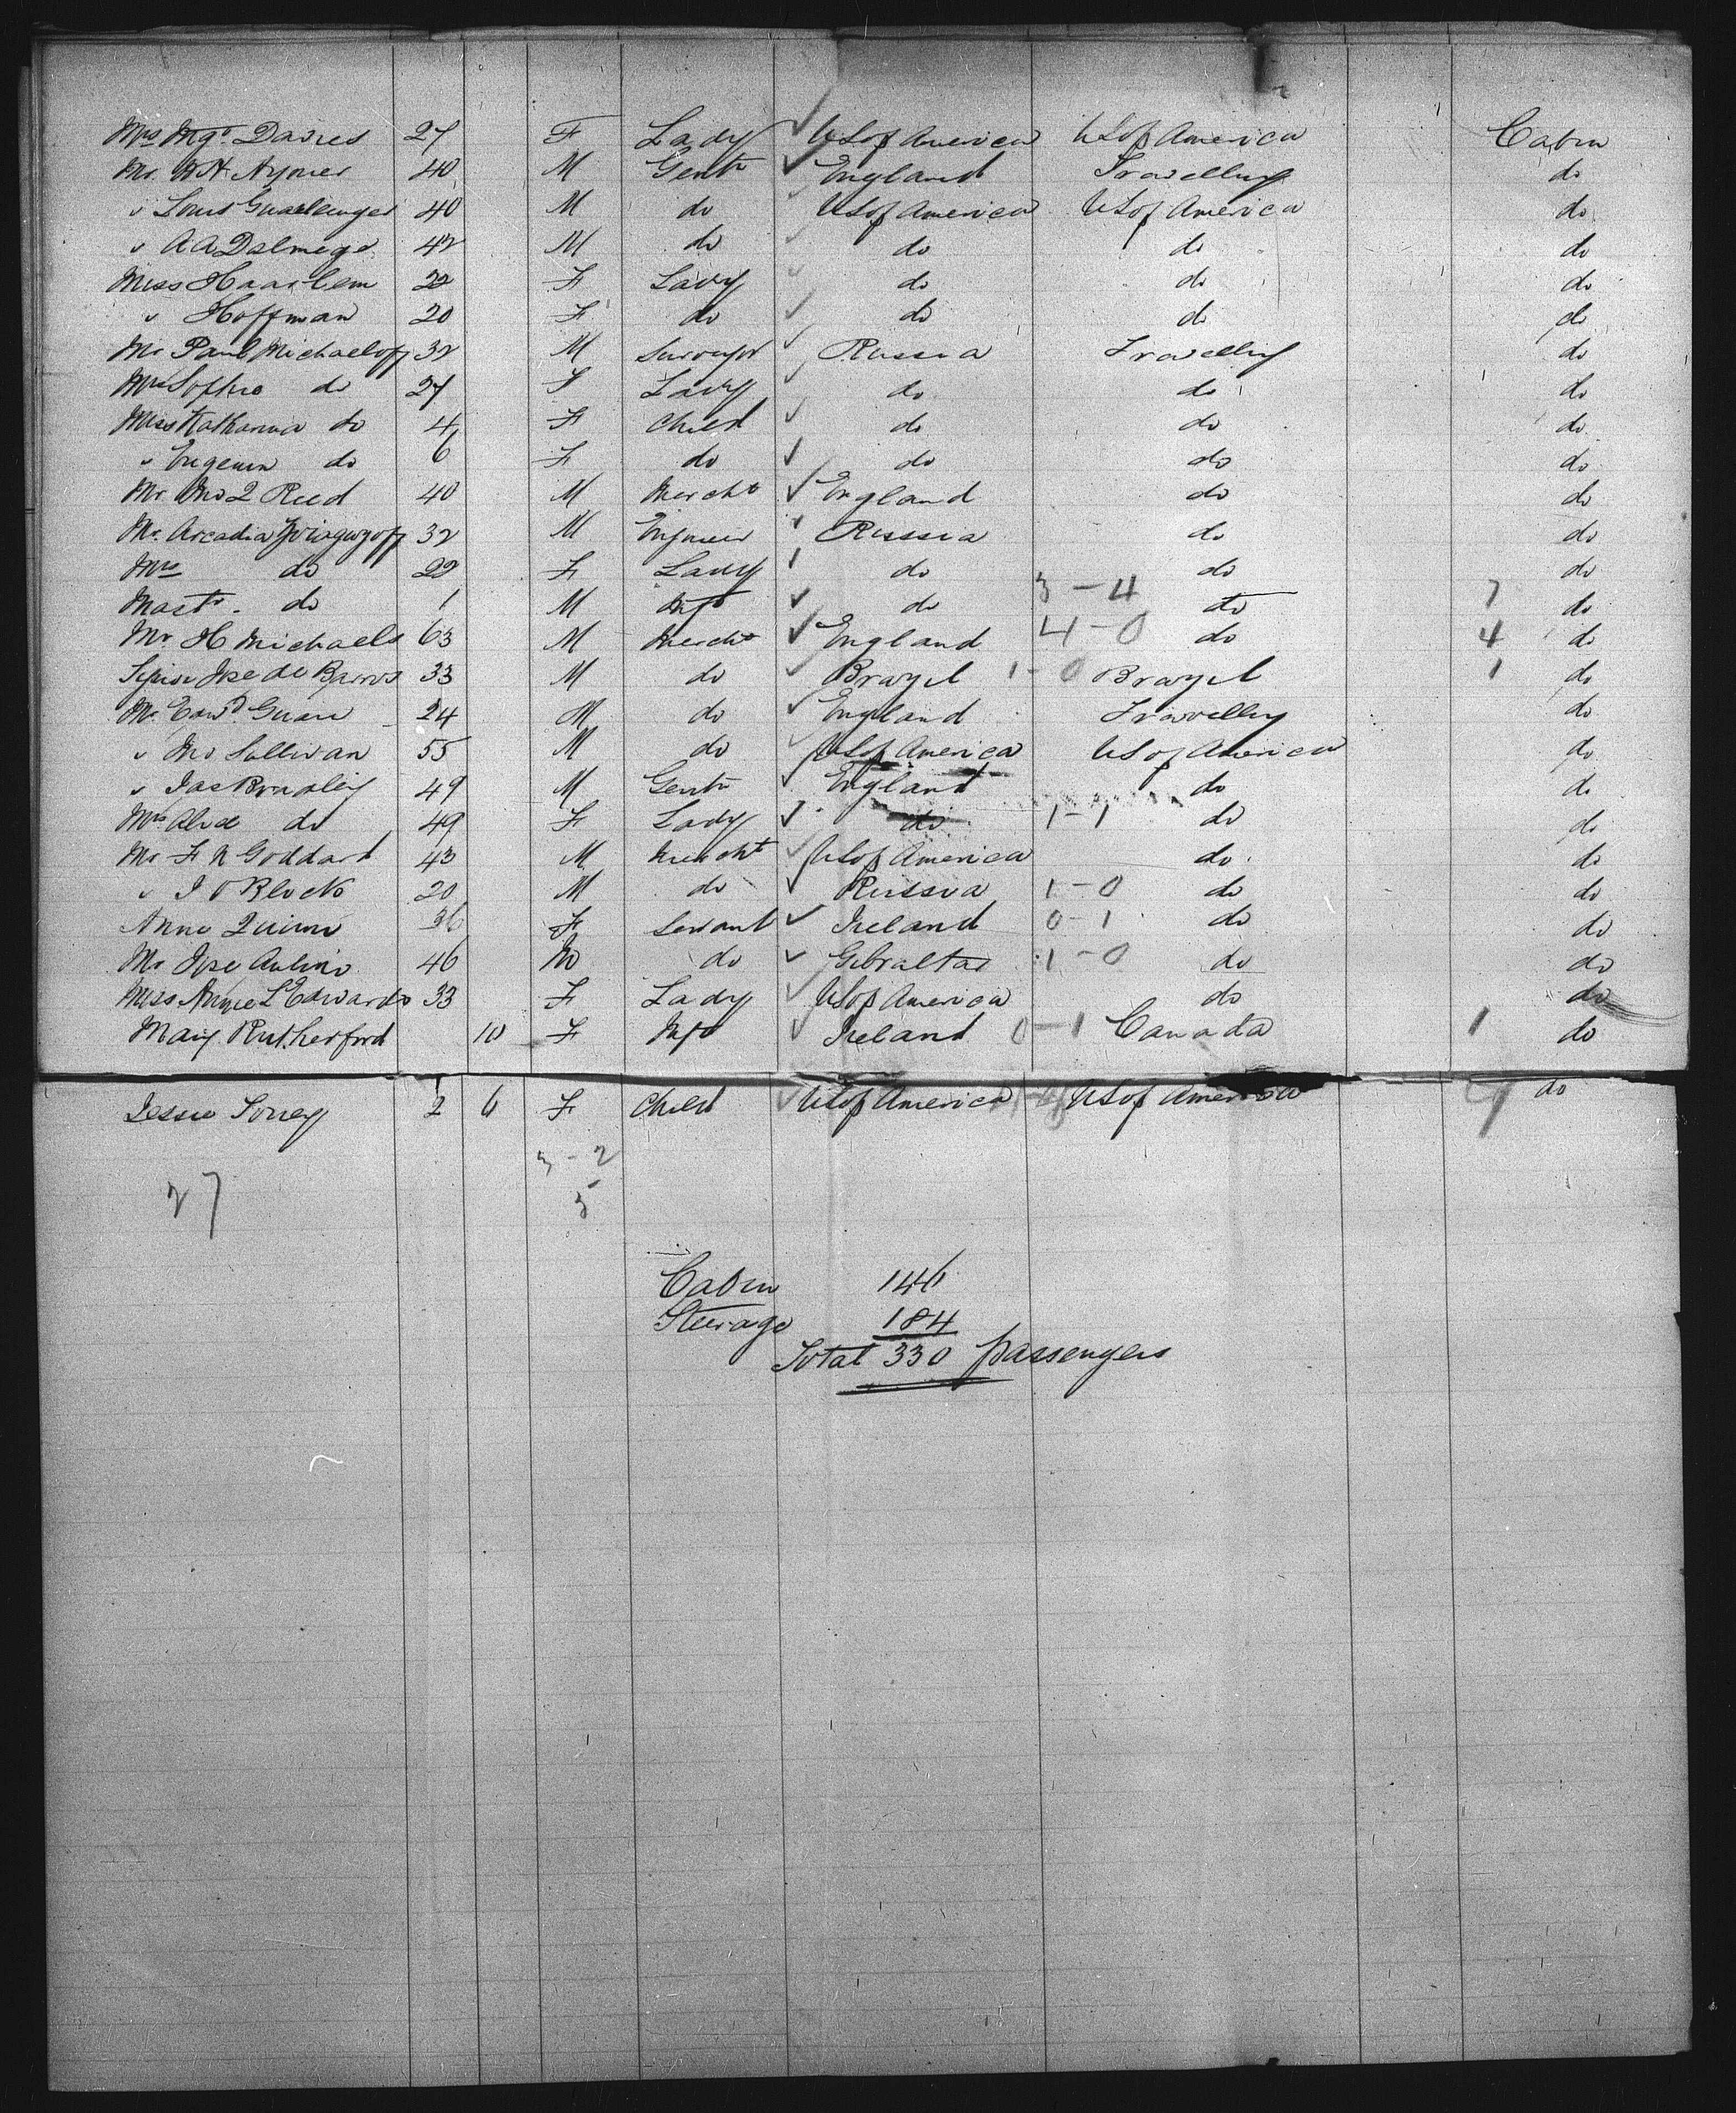 Mrs Mgt Davies 27 F Lady ✓ US of America US of America Cabin
Mr Aymer 40 M Gentn ✓ England Travelling do
" Louis 40 M do ✓ US of America US of America do
" A A Dalmage 42 M do ✓ do do do
Miss Haarlem 22 F Lady ✓ do do do
" Hoffman 20 F do ✓ do do do
Mr Paul Michaeloff 32 M Surveyor ✓ Russia Travelling do
Mrs Sophie do 27 F Lady ✓ do do do
Miss Katharina do 4 F Child ✓ do do do
" Eugenia do 6 F do ✓ do do do
Mr Jno Reed 40 M Mercht ✓ England do do
Mr Arcadia 32 M Engineer ✓ Russia do do
Mrs do 22 F Lady ✓ do do do
Mastr. do 1 M Inft ✓ do 3-4 do 7 do
Mr H Michaels 63 M Mercht ✓ England 4-0 do 4 do
Jose de Barros 33 M do ✓ Brazil 1-0 Brazil 1 do
Mr Edwd 24 M do ✓ England Travelling do
" Jno Sullivan 55 M do ✓ US of America US of America do
" Jas Bradley 49 M Gentn ✓ England do do
Mrs Alice do 49 F Lady ✓ do 1-1 do do
Mr F N Goddard 43 M Mercht ✓ US of America do do
" J O Block 20 M do ✓ Russia 1-0 do do
Anne Quinn 36 F Servant ✓ Ireland 0-1 do do
Mr Jose 46 M do ✓ Gibraltar 1-0 do do
Miss Annie L Edwards 33 F Lady ✓ US of America do do
Mary Rutherford 10 F Inft ✓ Ireland 0-1 Canada 1 do
Jessie 2 6 F Child ✓ US of America US of America do
3-2
27 5
Cabin 146
Steerage 184
Total 330 passengers